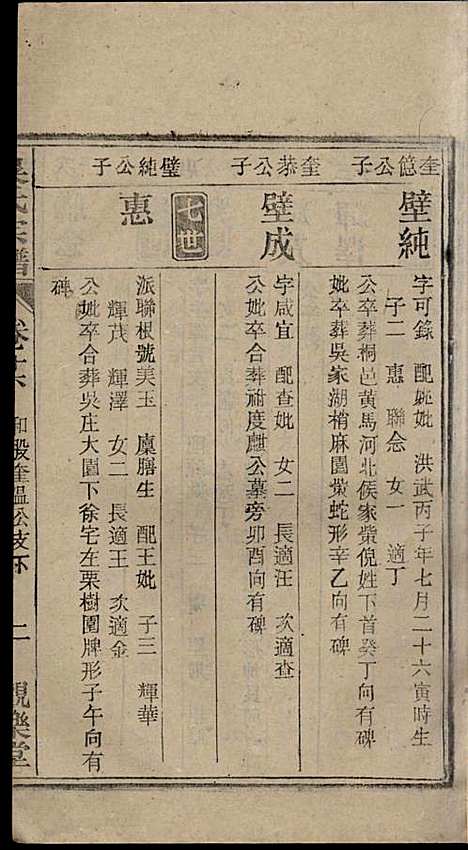 奎億公子
壁純
字可錄　配姚妣　洪武丙子年七月二十六寅時生
子二　惠　聯念　女一　適丁
公卒葬桐邑黃馬河北侯家凿倪姓下首癸丁向有碑
妣卒葬吳家湖梢麻園凿蛇形辛乙向有碑
奎恭公子
壁成
字咸宜　配查妣　女二　長適汪　次適查
公妣卒合葬祔度麒公墓旁卯酉向有碑
壁純公子
七世
惠
派聯根號美玉　廩膳生　配王妣　子三　輝華
輝茂　輝澤　女二　長適王　次適金
公妣卒合葬吳庄大園下徐宅左栗樹園牌形子午向有
碑
吳氏宗譜
卷之六　和股奎溫公支下　二　親樂堂